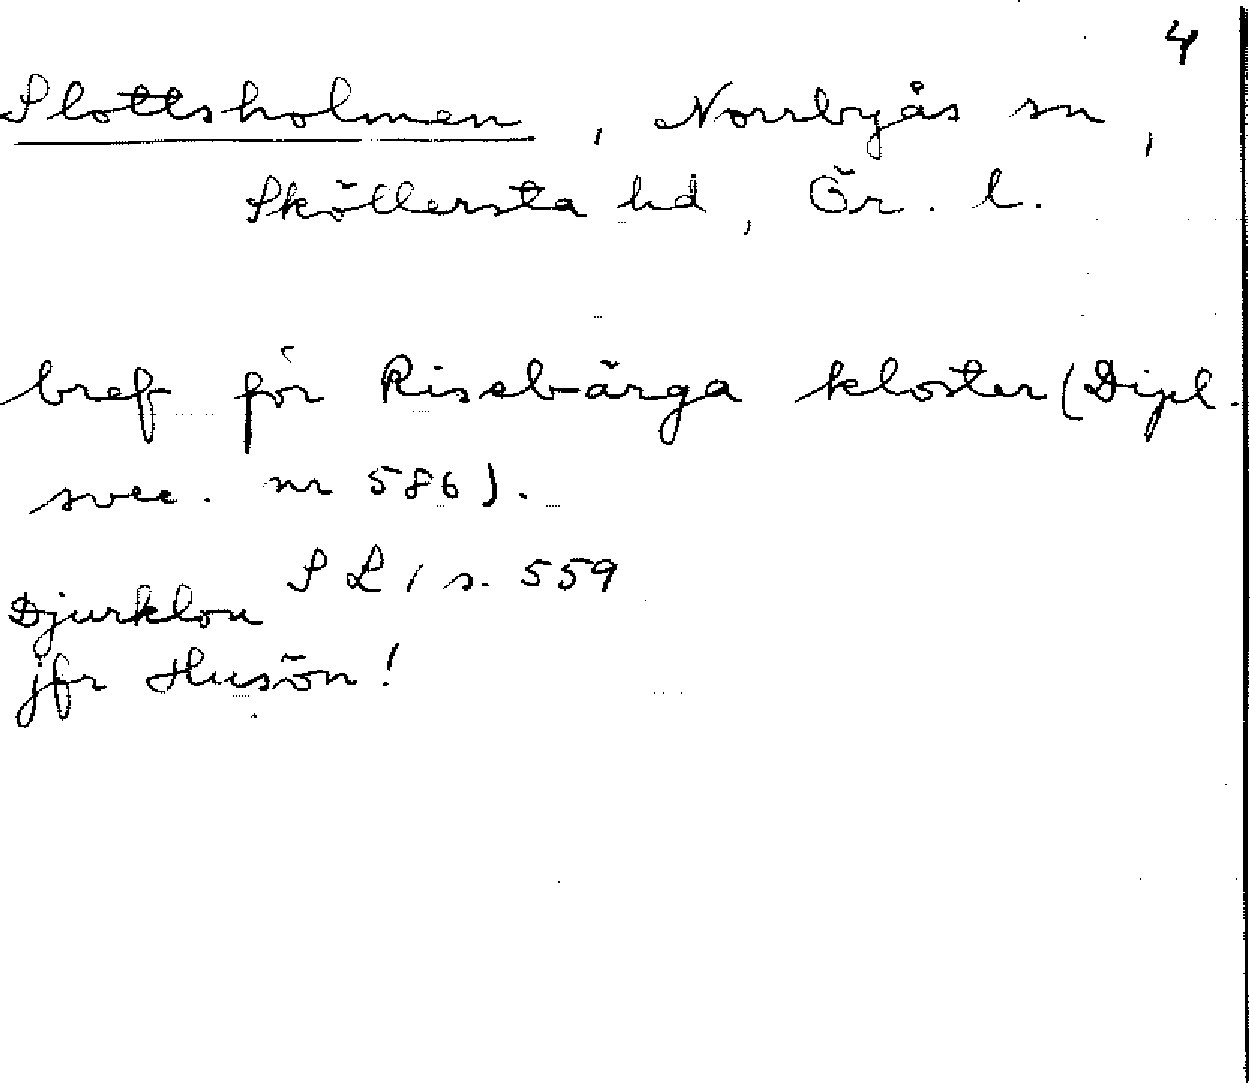 4
Slottsholmen, Norrbyås sn,
Sköllersta hd, Ör. l.
bref för Riseb-ärga kloster (Dipl.
svec. nr 586).
S L 1 s. 559
Djurklou
jfr Husön!